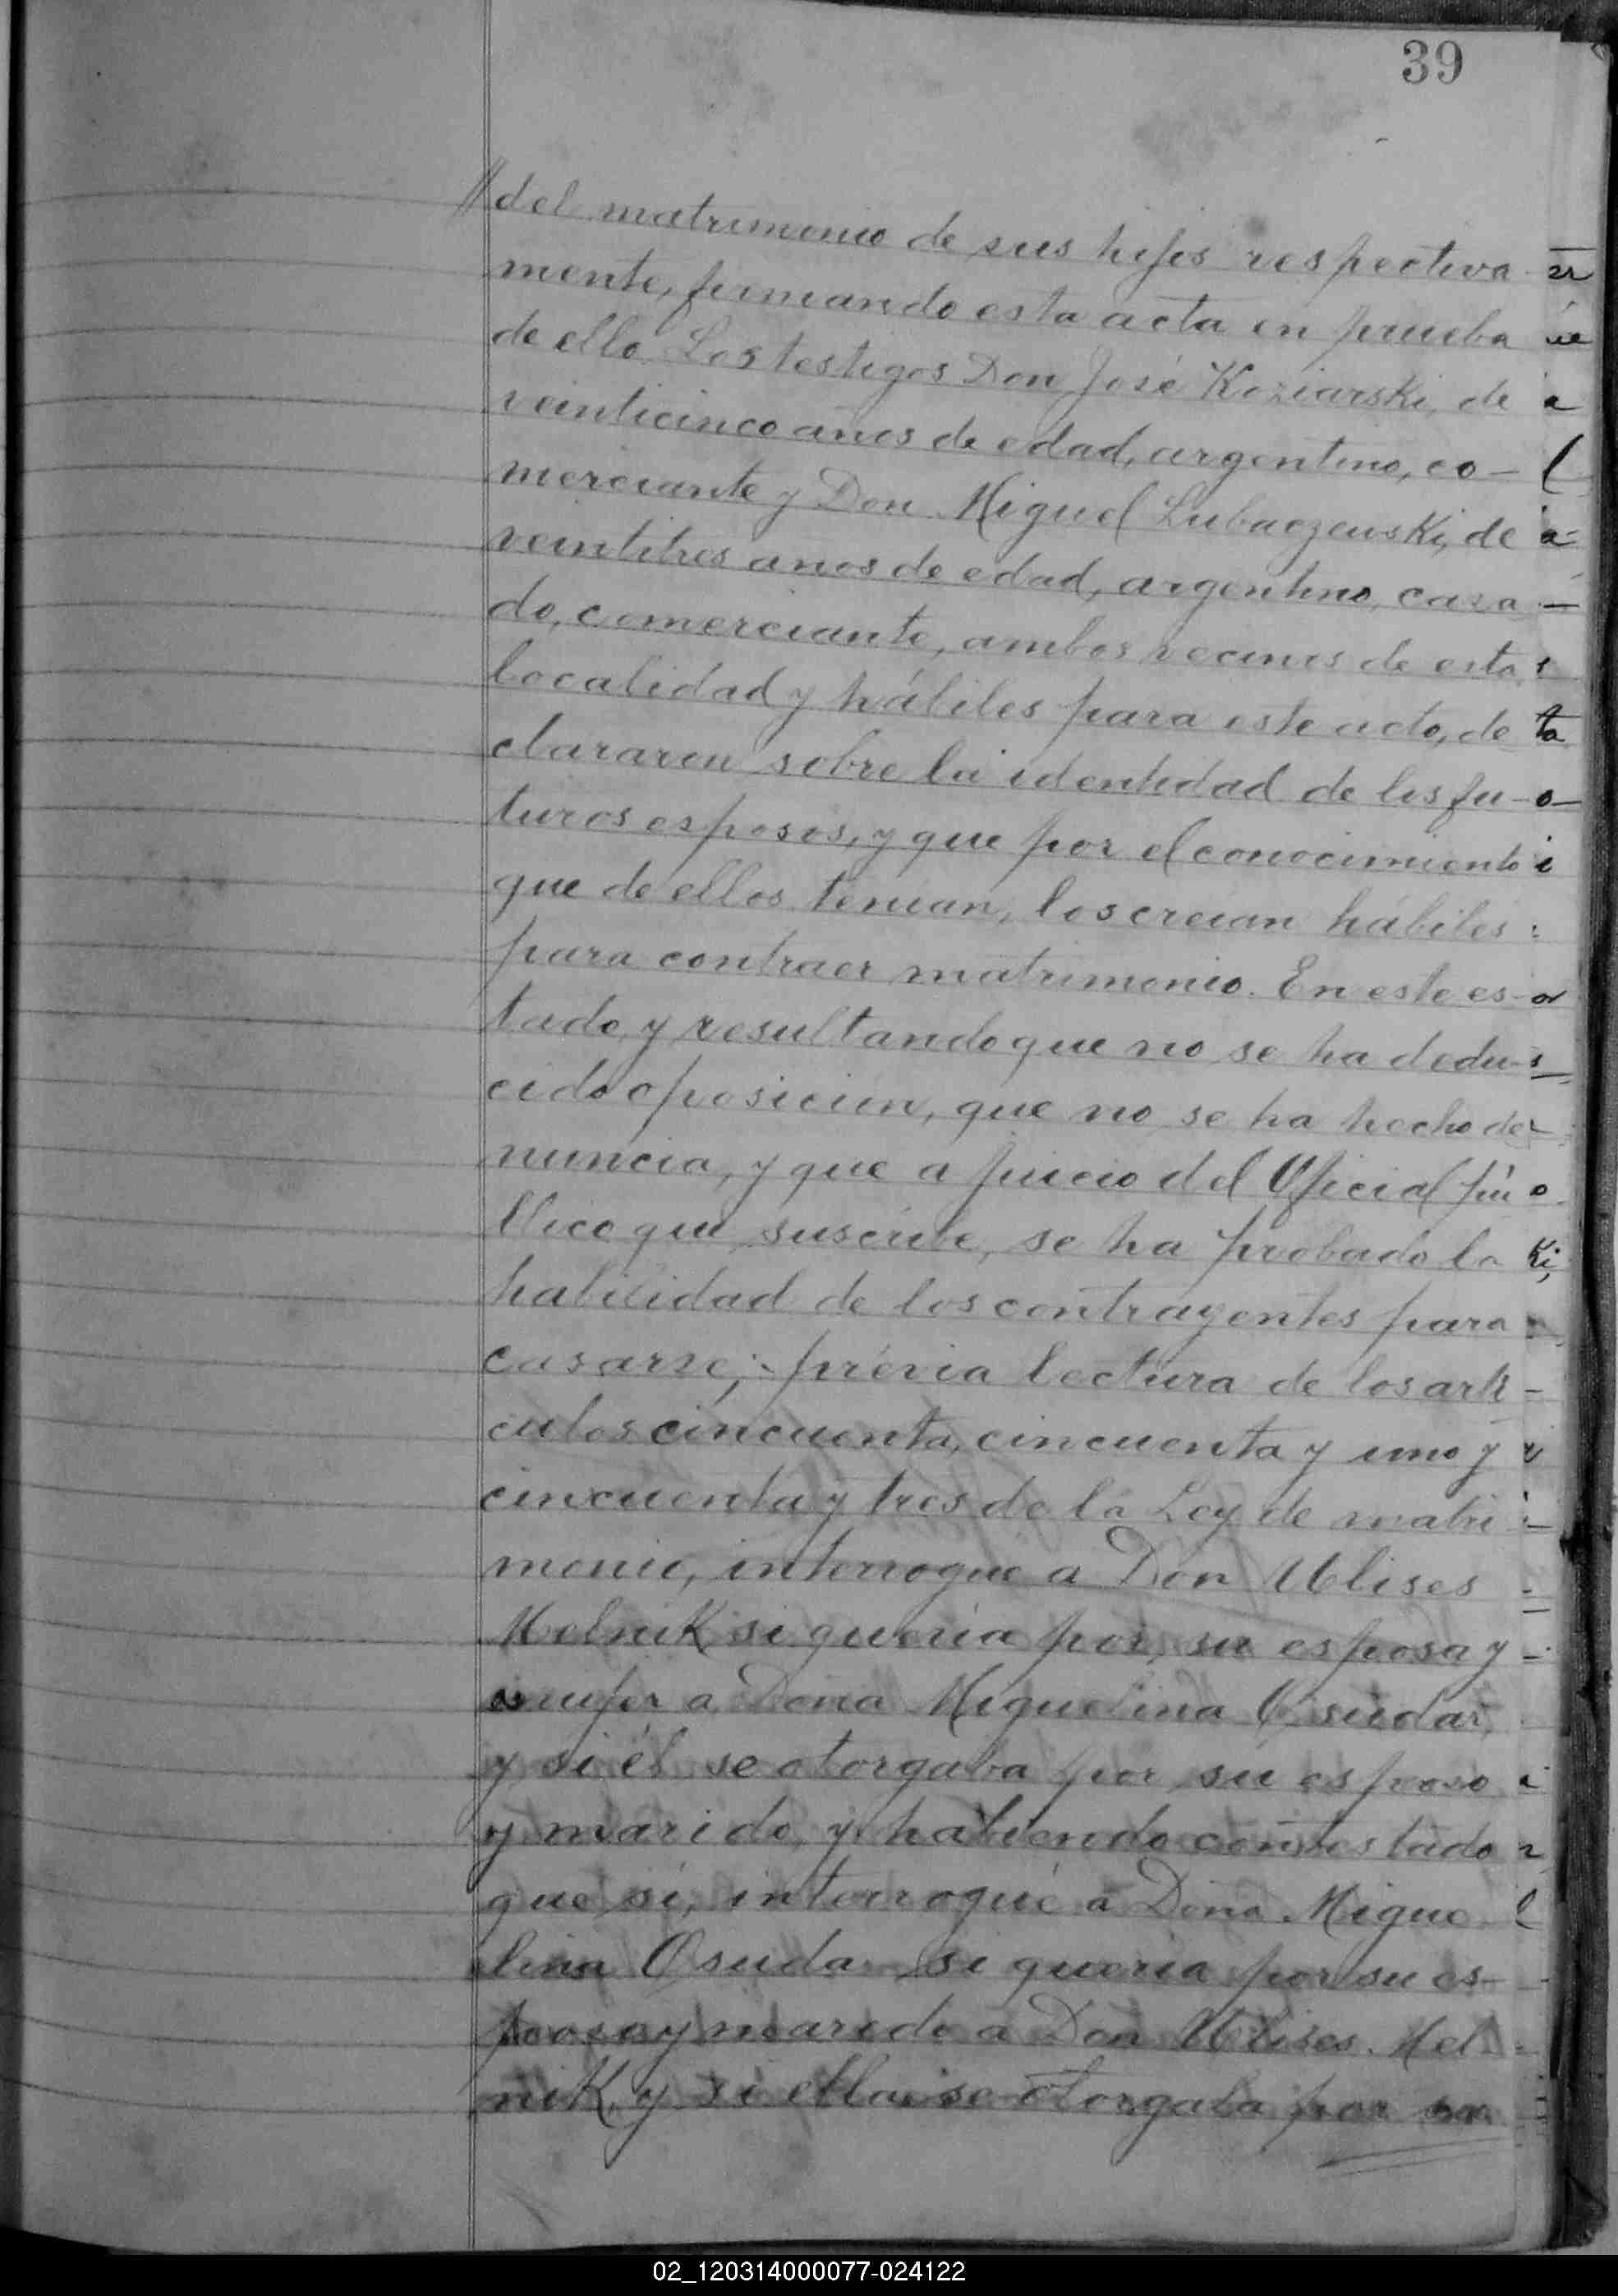 39
//del matrimonio de sus hijos respectiva
mente, firmando esta acta en prueba
de ello. Los testigos Don José Koziarski, de
veinticinco años de edad, argentino, co-
merciante y Don Miguel Lubaczewski, de
veintitres años de edad, argentino, casa
do, comerciante, ambos vecinos de esta
localidad y hábiles para este acto, de
clararon sobre la identidad de los fu-
turos esposos, y que por el conocimiento
que de ellos tenian, los creian hábiles
para contraer matrimonio. En este es-
tado, y resultando que no se ha dedu-
cido oposicion, que no se ha hecho de-
nuncia, y que a juicio del Oficial pú
blico que suscribe, se ha probado la
habilidad de los contrayentes para
casarse; prévia lectura de los arti-
culos cincuenta, cincuenta y uno y
cincuenta y tres de la Ley de matri
monio, interrogué a Don Ulises
Melnik si queria por su esposa y
mujer a Doña Miguelina Osudar,
y si él se otorgaba por su esposo
y marido, y habiendo contestado
que sí, interrogué a Doña Migue
lina Osudar si queria por su es-
poso y marido a Don Ulises Mel-
nik, y si ella se otorgaba por su
02_120314000077-024122